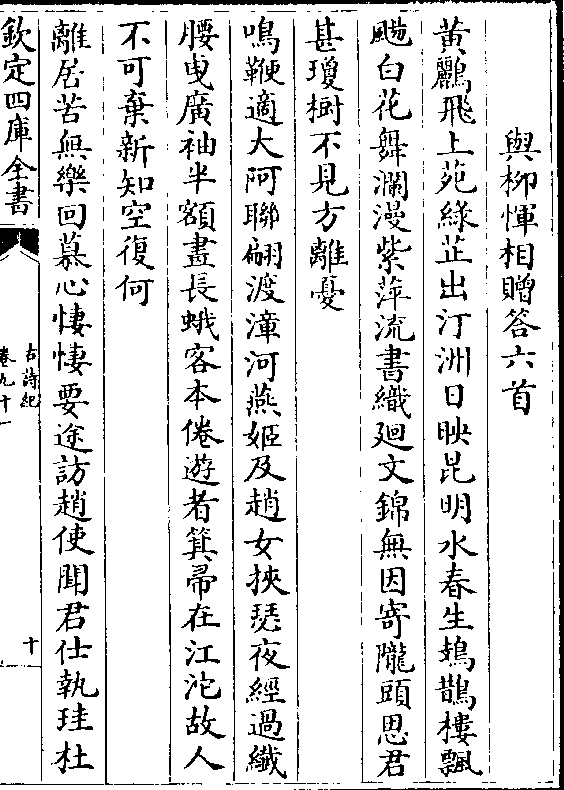 與柳惲相贈答六首
黄鸝飛上苑綠芷出汀洲日映昆明水春生鳷鵲樓飄
颺白花舞瀾漫紫萍流書織廻文錦無因寄隴頭思君
甚瓊樹不見方離憂
鳴鞭適大阿聯翩渡漳河燕姬及趙女挾瑟夜經過纎
腰曵廣袖半額畫長蛾客本倦遊者箕帚在江沱故人
不可棄新知空復何
離居苦無樂回慕心悽悽要途訪趙使聞君仕執珪杜
欽定四庫全書
古詩紀
卷九十一
十